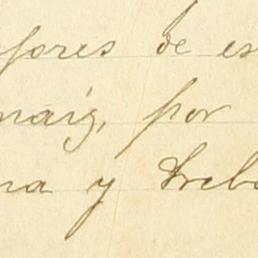 fores de es
maig, por
na y Treba